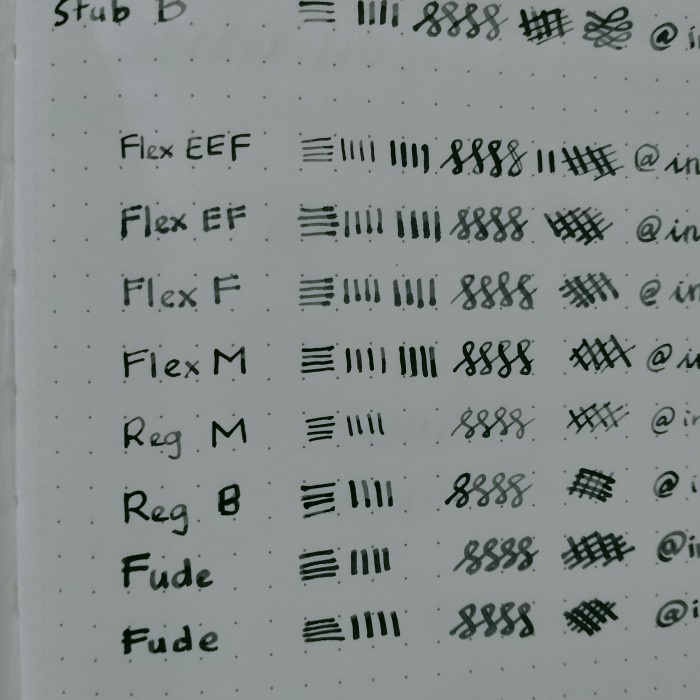 Stub B @
Flex EEF @in
Flex EF @in
Flex F @in
Flex M @in
Reg M @in
Reg B @i
Fude @in
Fude @i